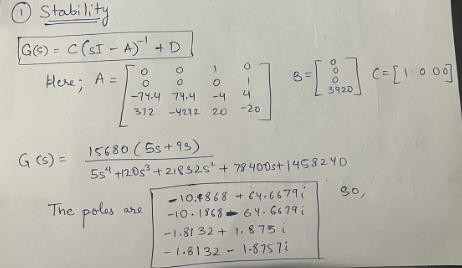 ① Stability
G(s) = C(sI - A)⁻¹ + D
Here; A = [0 0 1 0
0 0 0 1
-74.4 74.4 -4 4
372 -4292 20 -20] B = [0 0 0 3920] C = [1 0 0 0]
G(s) = 15680 (5s + 93)
5s⁴ + 120s³ + 21832s² + 78400s + 1458240
The poles are -10.1868 + 64.6679i so,
-10.1868 - 64.6679i
-1.8132 + 1.875i
-1.8132 - 1.8757i